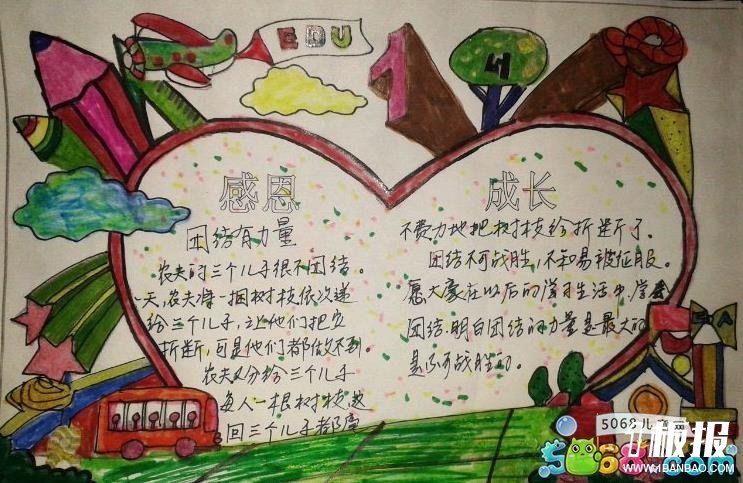 EDU
1
4
感恩
团结有力量
农夫的三个儿子很不团结。
一天,农夫将一捆树枝依次递
给三个儿子,让他们把它
折断,可是他们都做不到。
农夫又分给三个儿子
每人一根树枝,这
回三个儿子都毫
成长
不费力地把树枝给折断了。
团结不可战胜,不知易被征服。
愿大家在以后的学习生活中,学会
团结,明白团结的力量是最大的
是不可战胜的。
5068儿
板报
WWW.1BANBAO.COM